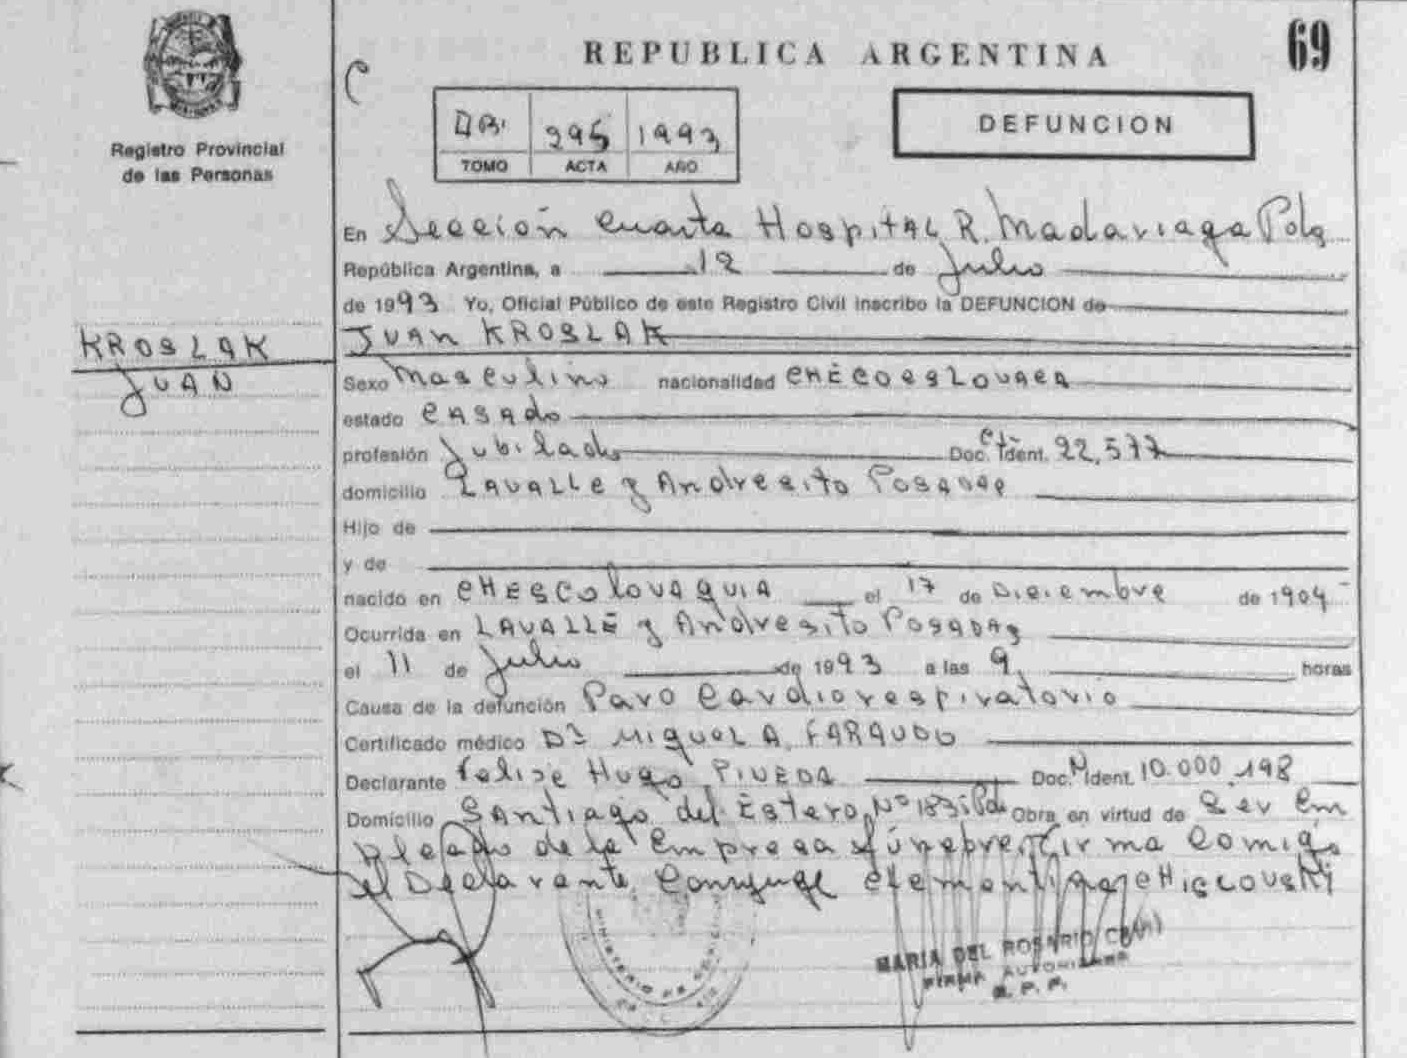 REPUBLICA ARGENTINA
69
Registro Provincial
de las Personas
295 1993
TOMO ACTA AÑO
DEFUNCION
En Sección Cuarta HospitAL R. Madariaga Pdas
República Argentina, a 12 de Julio
de 1993 Yo, Oficial Público de este Registro Civil inscribo la DEFUNCION de
KROSLAK
JUAN
JUAN KROSLAK
Sexo masculino nacionalidad CHECOESLOVACA
estado CASADO
profesión Jubilado Doc. Ident. 22,577
domicilio LAVALLE y Andresito Posadas
Hijo de
y de
nacido en CHESCOlOVAQUIA el 17 de Diciembre de 1904
Ocurrida en LAVALLE y Andresito POSADAS
el 11 de Julio de 1993 a las 9 horas
Causa de la defunción Paro Cardiorespiratorio
Certificado médico Dr MIGUEL A. FARAUDO
Declarante Felipe Hugo PINEDA Doc. N Ident. 10.000.198
Domicilio SAntiago del Estero Nº 1835 Pdas Obra en virtud de Ser Em
pleado de la Empresa fúnebre. Firma Comigo
el Declarante. Conyuge
MINISTERIO DE
MARIA DEL ROSARIO
FIRMA AUTORIZADA
R. P. P.